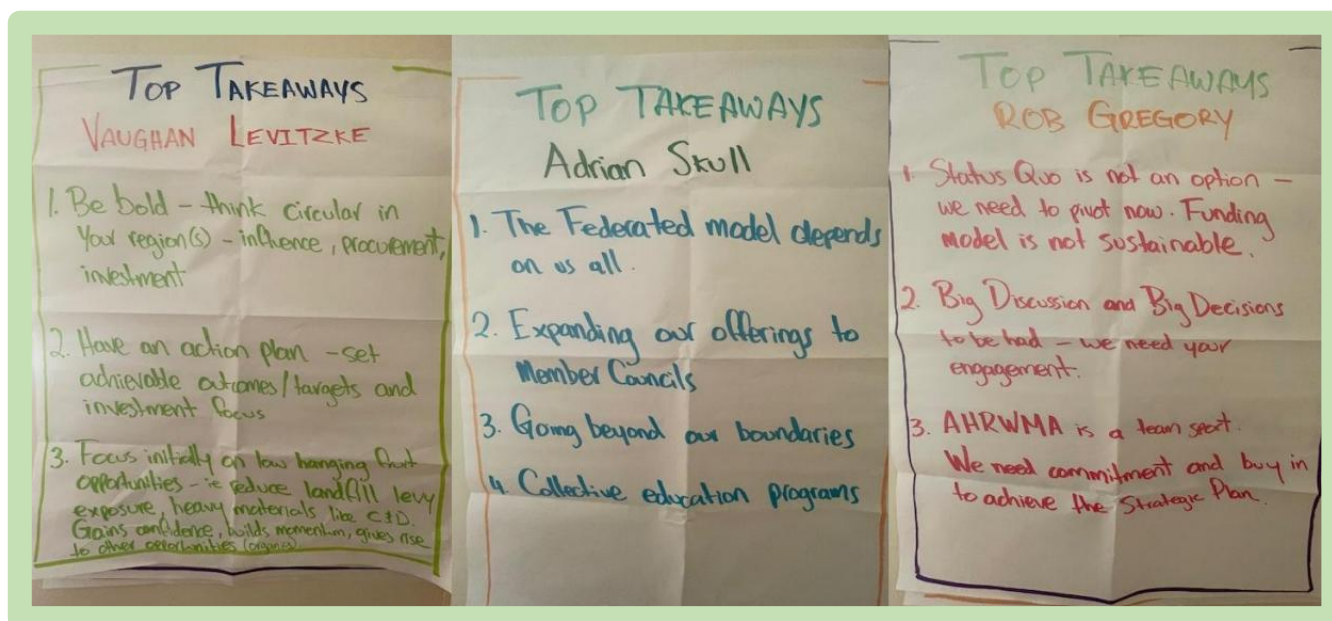 TOP TAKEAWAYS
VAUGHAN LEVITZKE
1. Be bold - think circular in
your region(s) - influence, procurement,
investment
2. Have an action plan - set
achievable outcomes/targets and
investment focus
3. Focus initially on low hanging fruit
opportunities - ie reduce landfill levy
exposure, heavy materials like C&D.
Gains confidence, builds momentum, gives rise
to other opportunities (organics)
TOP TAKEAWAYS
Adrian Skull
1. The Federated model depends
on us all.
2. Expanding our offerings to
Member Councils
3. Going beyond our boundaries
4. Collective education programs
TOP TAKEAWAYS
ROB GREGORY
1. Status Quo is not an option -
we need to pivot now. Funding
model is not sustainable.
2. Big Discussion and Big Decisions
to be had - we need your
engagement.
3. AHRWMA is a team sport.
We need commitment and buy in
to achieve the Strategic Plan.